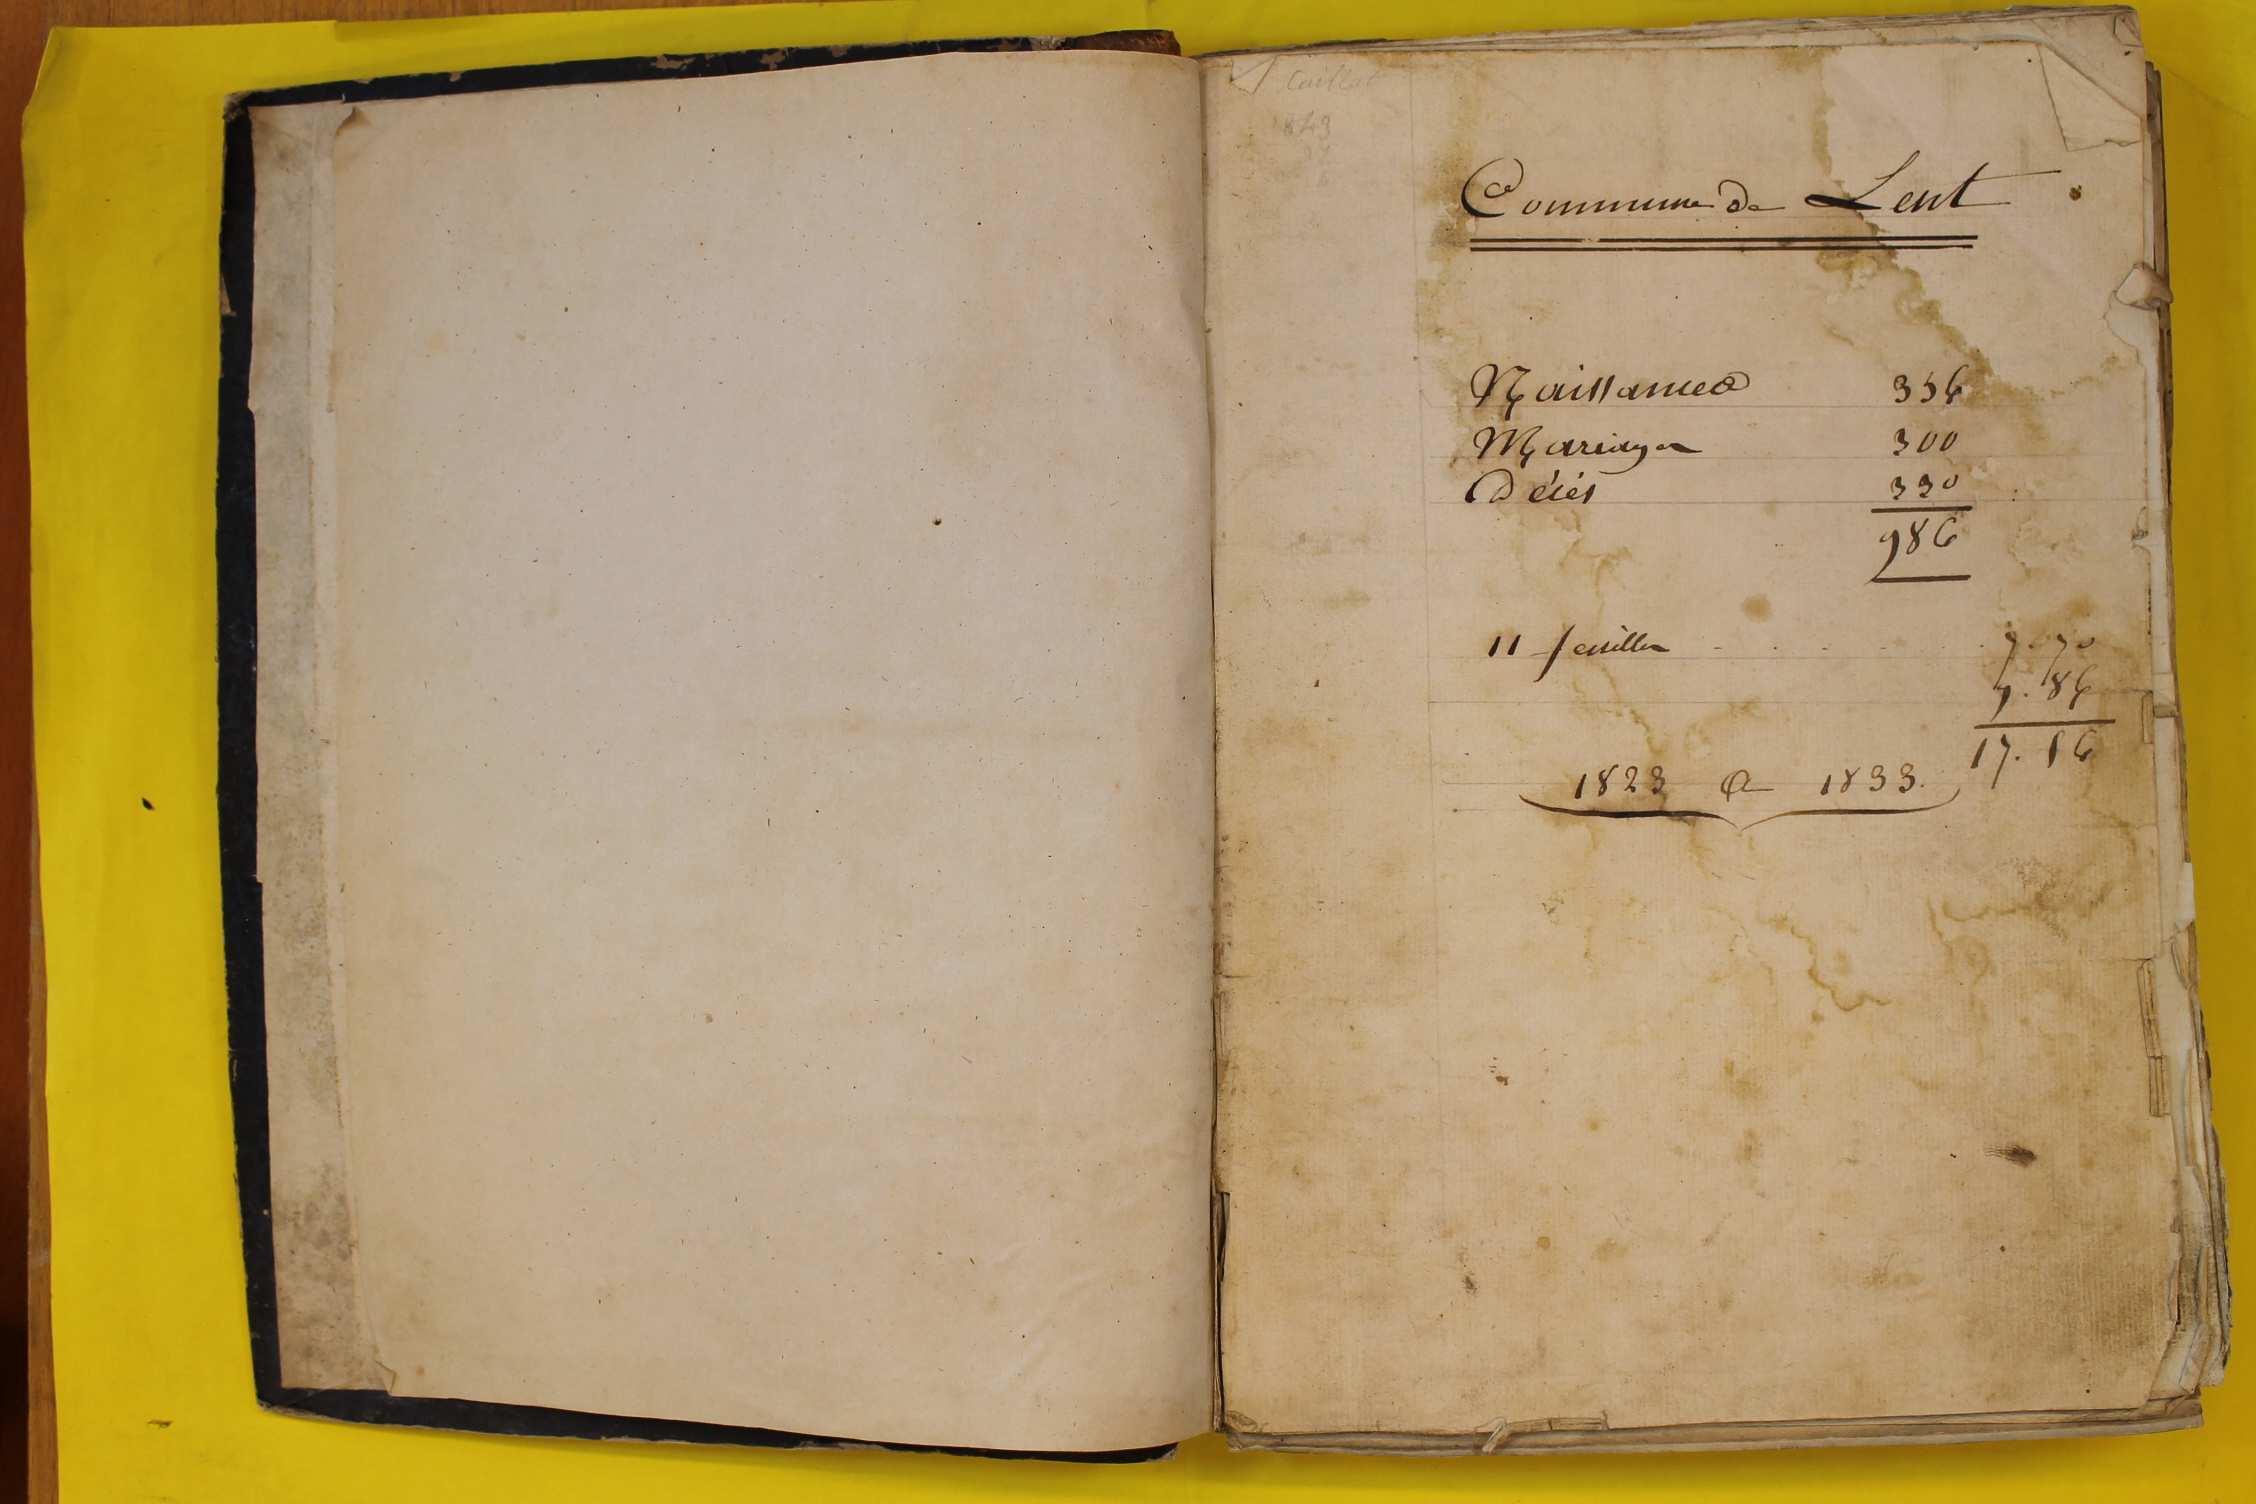 Commune de Lent
Naissances 356
Mariages 300
Décès 330
986
11 feuilles - . . . . . 7.70
9.86
17.56
1823 a 1833.